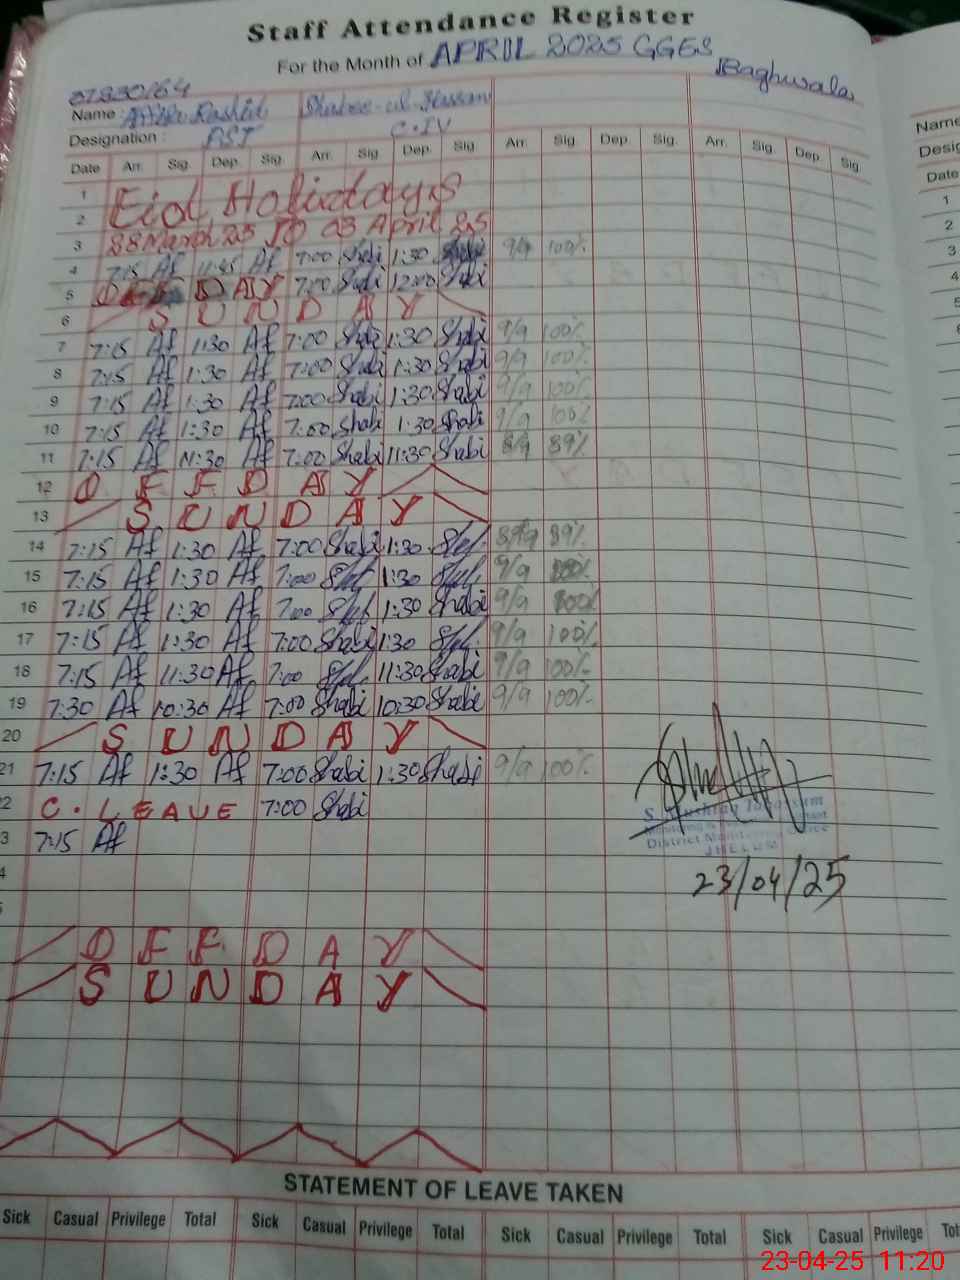 Staff Attendance Register
For the Month of APRIL 2025 GGES
Baghwala
Name : Rashid Shabee-ul-Hassan
Designation : PST C-IV
Date Arr. Sig. Dep. Sig. Arr. Sig. Dep. Sig. Arr. Sig. Dep. Sig. Arr. Sig. Dep. Sig.
1 Eid Holidays
2
3 28 March 25 TO 03 April 25
4 7:15 Af 11:45 Af 7:00 Shabi 1:30 9/9 100%
5 OFF DAY 7:00 Shabi 12:00 Shabi
6 SUNDAY
7 7:15 Af 1:30 Af 7:00 Shabi 1:30 Shabi 9/9 100%
8 7:15 Af 1:30 Af 7:00 Shabi 1:30 Shabi 9/9 100%
9 7:15 Af 1:30 Af 7:00 Shabi 1:30 Shabi 9/9 100%
10 7:15 Af 1:30 Af 7:00 Shabi 1:30 Shabi 9/9 100%
11 7:15 Af 11:30 Af 7:00 Shabi 11:30 Shabi 8/9 89%
12 OFF DAY
13 SUNDAY
14 7:15 Af 1:30 Af 7:00 Shabi 1:30 89%
15 7:15 Af 1:30 Af 7:00 1:30 9/9 100%
16 7:15 Af 1:30 Af 7:00 1:30 Shabi 9/9 100%
17 7:15 Af 1:30 Af 7:00 Shabi 1:30 9/9 100%
18 7:15 Af 11:30 Af 7:00 11:30 Shabi 9/9 100%
19 7:30 Af 10:30 Af 7:00 Shabi 10:30 Shabi 9/9 100%
20 SUNDAY
21 7:15 Af 1:30 Af 7:00 Shabi 1:30 Shabi 9/9 100%
22 C. LEAVE 7:00 Shabi
3 7:15 Af
4
District Monitoring Office
JHELUM
23/04/25
OFF DAY
SUNDAY
STATEMENT OF LEAVE TAKEN
Sick Casual Privilege Total Sick Casual Privilege Total Sick Casual Privilege Total Sick Casual Privilege
Name
Date
1
2
3
4
5
6
23-04-25 11:20